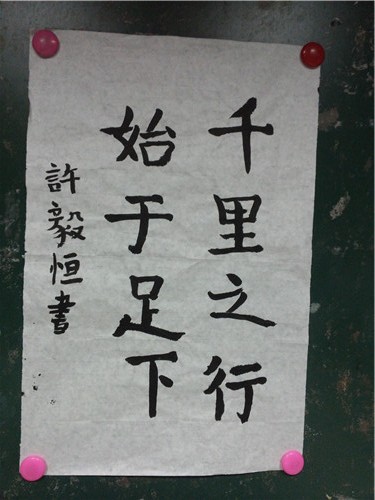 千里之行
始于足下
許毅恒書